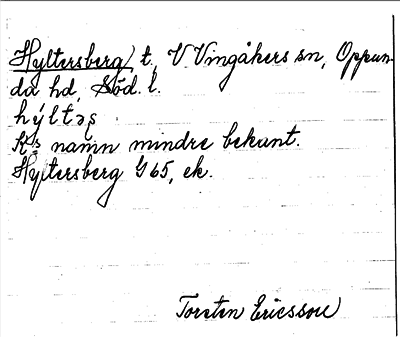 Hyltersberg, t., V Vingåkers sn, Oppun-
da hd, Söd. l.
hýltəʂ
K:s namn mindre bekant.
Hyltersberg G 65, ek.
Torsten Ericsson